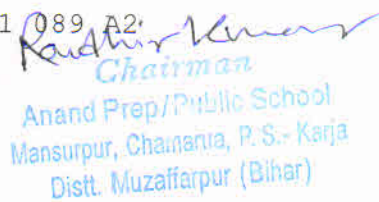 1 089 A2
Randhir Kumar
Chairman
Anand Prep/Public School
Mansurpur, Chamarua, P. S.- Karja
Distt. Muzaffarpur (Bihar)